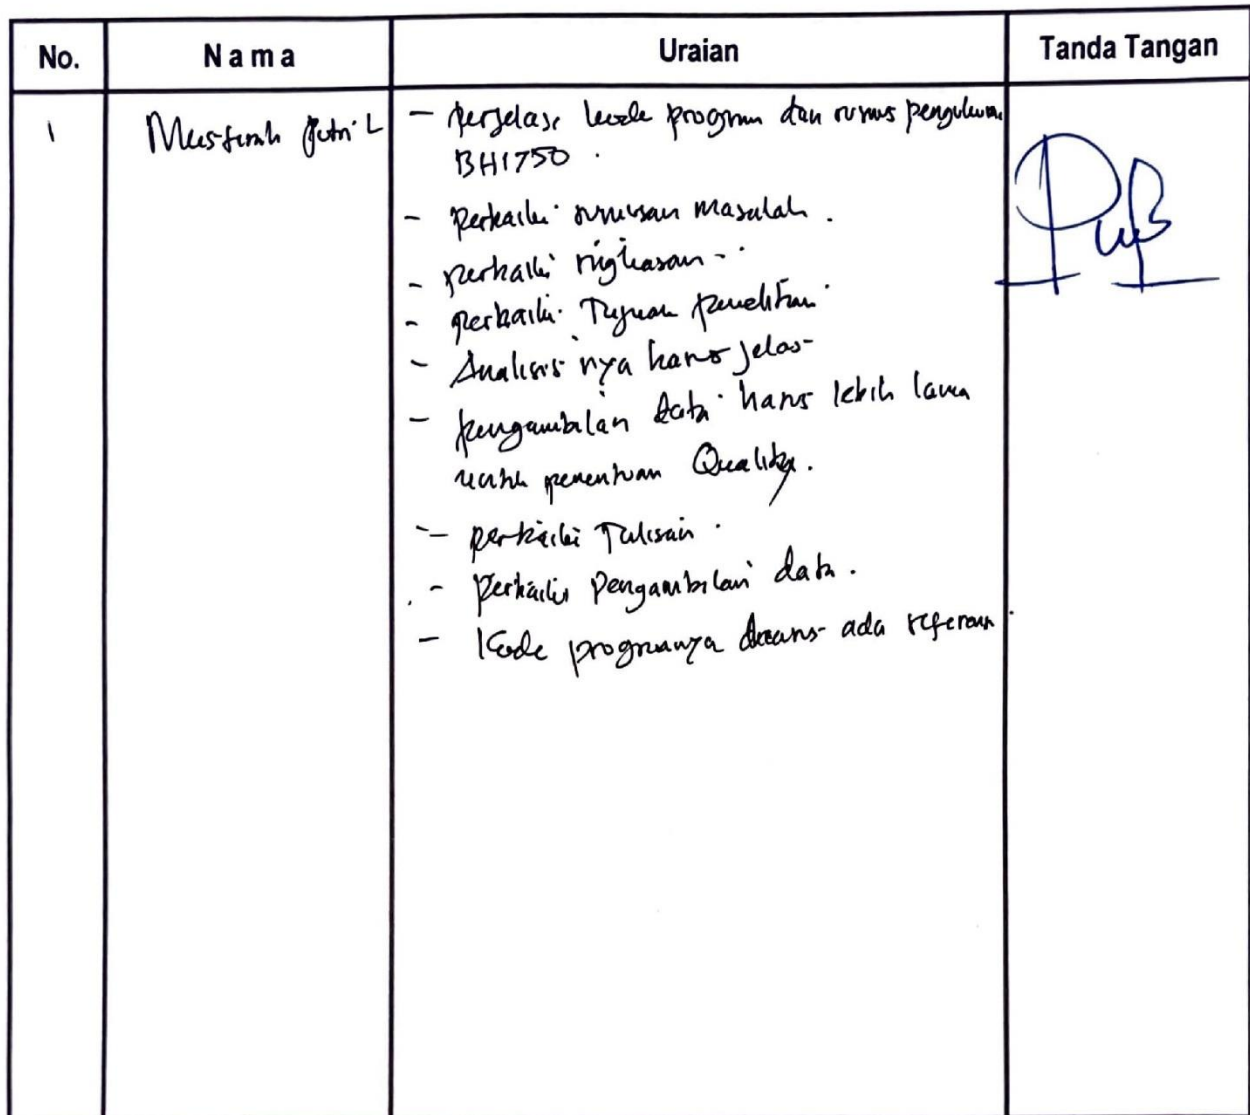 No. Nama Uraian Tanda Tangan
1 Putri L - perjelas kode program dan rumus pengukuran
BH1750.
- perbaiki rumusan masalah.
- perbaiki ringkasan -
- perbaiki Tujuan penelitian
- Analisis nya harus jelas
- pengambilan data harus lebih lama
untuk penentuan Quality.
- perbaiki Tulisan.
- Perbaiki Pengambilan data.
- Kode programnya ada referensi